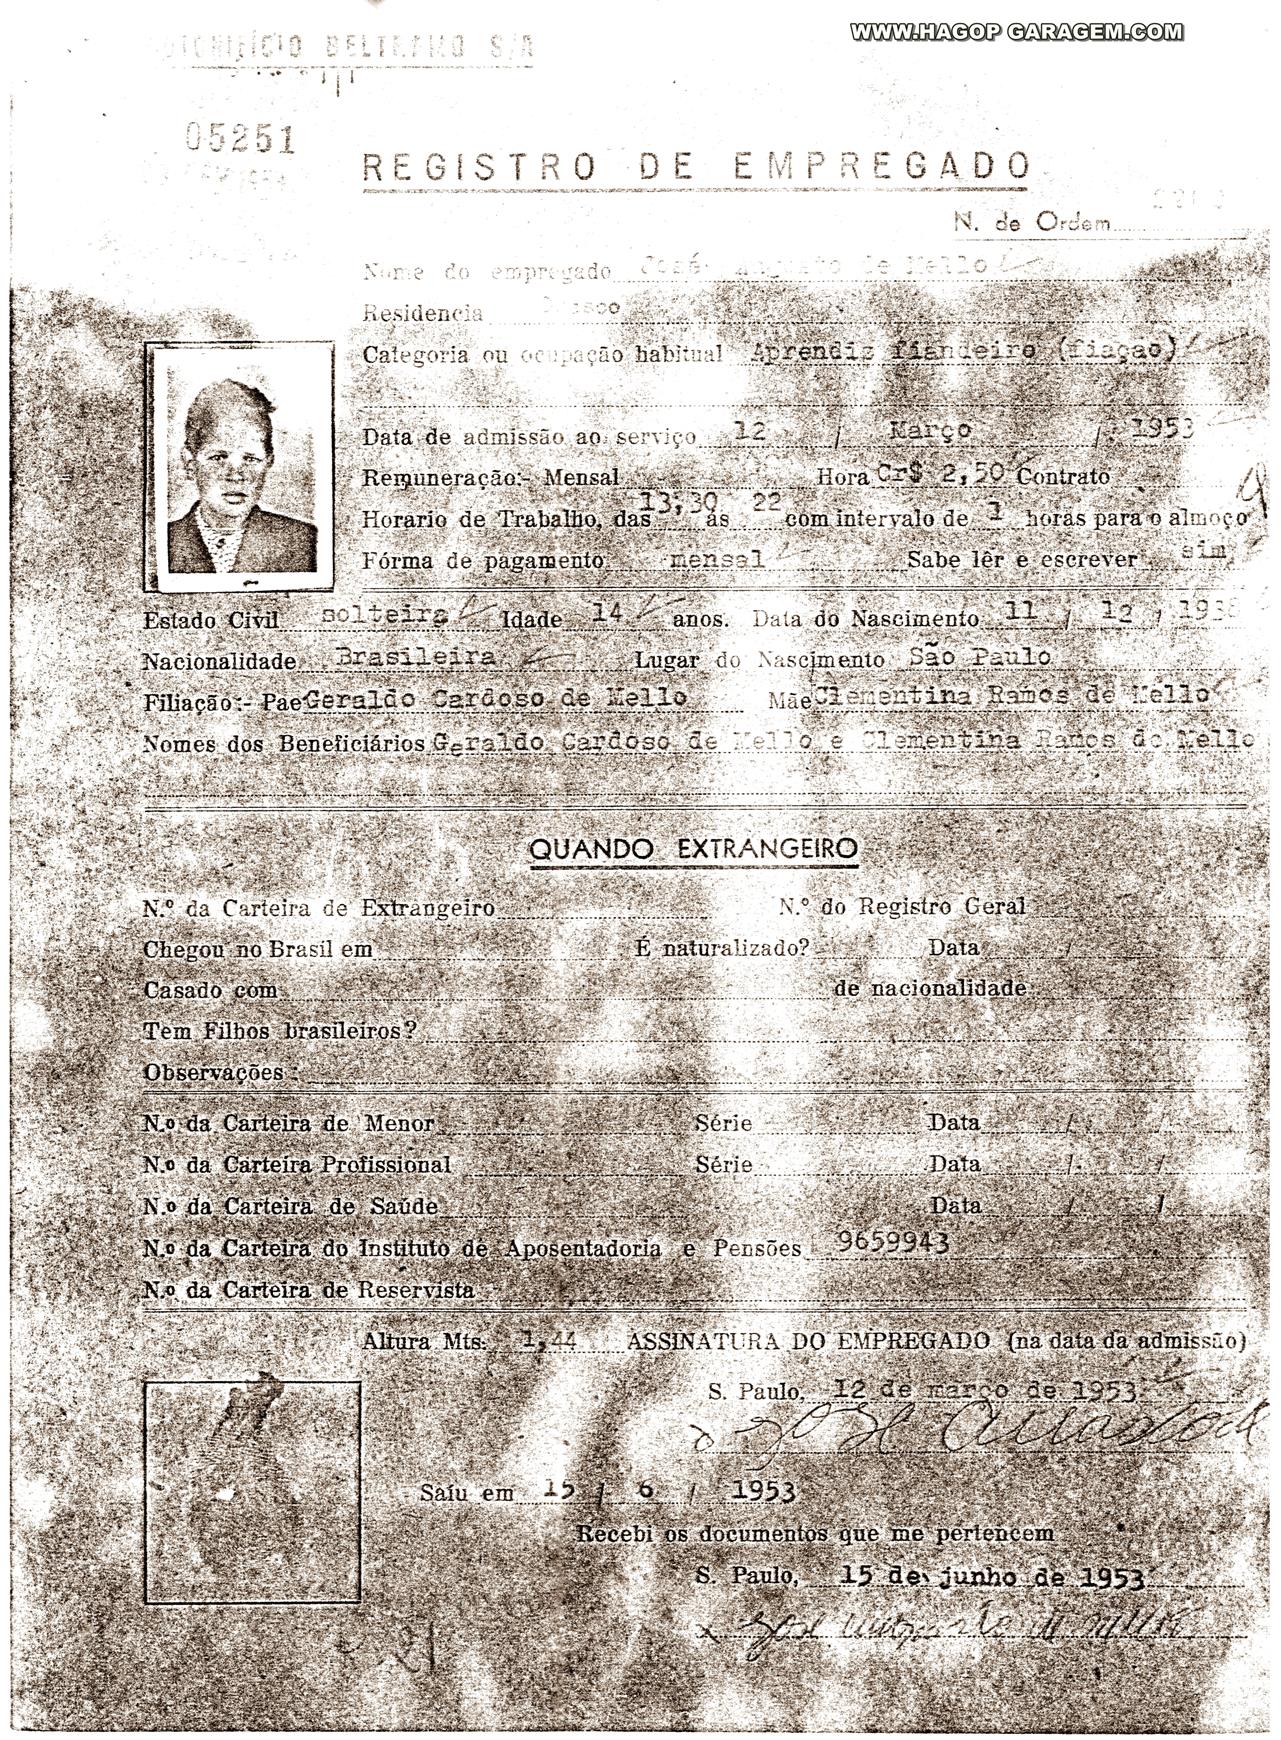 WWW.HAGOP GARAGEM.COM
BELTRAMO S/A
05251
REGISTRO DE EMPREGADO
N. de Ordem
Nome do empregado José Augusto de Mello
Residencia
Categoria ou ocupação habitual Aprendiz fiandeiro (fiação)
Data de admissão ao serviço 12 / Março / 1953
Remuneração:- Mensal Hora Cr$ 2,50 Contrato
Horario de Trabalho, das 13,30 ás 22 com intervalo de 1 horas para o almoço
Fórma de pagamento mensal Sabe lêr e escrever sim
Estado Civil solteira Idade 14 anos. Data do Nascimento 11 / 12 / 1938
Nacionalidade Brasileira Lugar do Nascimento São Paulo
Filiação:- Pae Geraldo Cardoso de Mello Mãe Clementina Ramos de Mello
Nomes dos Beneficiários Geraldo Cardoso de Mello e Clementina Ramos de Mello
QUANDO EXTRANGEIRO
N.º da Carteira de Extrangeiro N.º do Registro Geral
Chegou no Brasil em É naturalizado? Data /
Casado com de nacionalidade
Tem Filhos brasileiros?
Observações:
N.o da Carteira de Menor Série Data / /
N.o da Carteira Profissional Série Data / /
N.o da Carteira de Saúde Data / /
N.o da Carteira do Instituto de Aposentadoria e Pensões 9659943
N.o da Carteira de Reservista
Altura Mts: 1,44 ASSINATURA DO EMPREGADO (na data da admissão)
S. Paulo, 12 de março de 1953
José
Saíu em 15 / 6 / 1953
Recebi os documentos que me pertencem
S. Paulo, 15 de junho de 1953
José Augusto de Mello
21